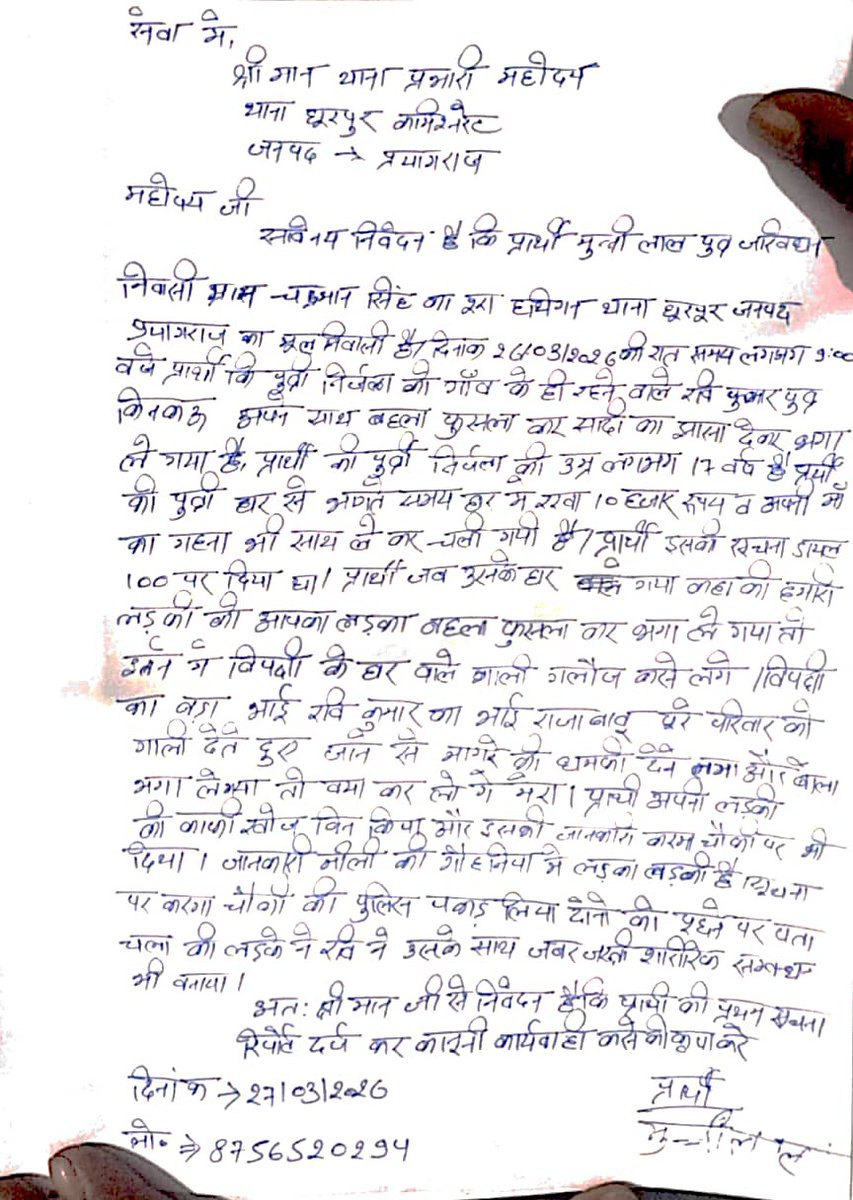 सेवा में,
श्री मान थाना प्रभारी महोदय
थाना घूरपुर कमिश्नरेट
जनपद → प्रयागराज
महोदय जी
सविनय निवेदन है कि प्रार्थी मुन्नी लाल पुत्र
निवासी ग्राम चन्द्रभान सिंह का पूरा थाना घूरपुर जनपद
प्रयागराज का मूल निवासी है। दिनांक 26/03/2026 की रात समय लगभग 9:00
बजे प्रार्थी कि पुत्री निर्जला को गाँव के ही रहने वाले रवि कुमार पुत्र
अपने साथ बहला फुसला कर सादी का झासा देकर भगा
ले गया है, प्रार्थी की पुत्री निर्जला की उम्र लगभग 17 वर्ष है प्रार्थी
की पुत्री घर से भागते समय घर में रखा 10 हजार रूपय व अपनी माँ
का गहना भी साथ ले कर चली गयी है। प्रार्थी इसकी सूचना डायल
100 पर दिया था। प्रार्थी जब उसके घर गया कहा की हमारी
लड़की को आपका लड़का बहला फुसला कर भगा ले गया तो
इतने में विपक्षी के घर वाले गाली गलौज करने लगे। विपक्षी
का बड़ा भाई रवि कुमार का भाई राजा बाबू पूरे परिवार को
गाली देते हुए जान से मारने की धमकी देने लगा और बोला
भगा लेगया तो क्या कर लो गे मेरा। प्रार्थी अपनी लड़की
की काफी खोज बिन किया और इसकी जानकारी करमा चौकी पर भी
दिया। जानकारी मीली की गौहनिया मे लड़का लड़की है। सूचना
पर करमा चौकी की पुलिस पकड़ लिया दोनो को पूछने पर पता
चला की लड़के ने रवि ने उसके साथ जबर जस्ती शारीरिक सम्बन्ध
भी बनाया।
अत: श्री मान जी से निवेदन है कि प्रार्थी की प्रथम सूचना
रिपोर्ट दर्ज कर कानूनी कार्यवाही करने की कृपा करे
दिनांक → 27/03/2026
प्रार्थी
मो० ⇒ 8756520294
मुन्नी लाल